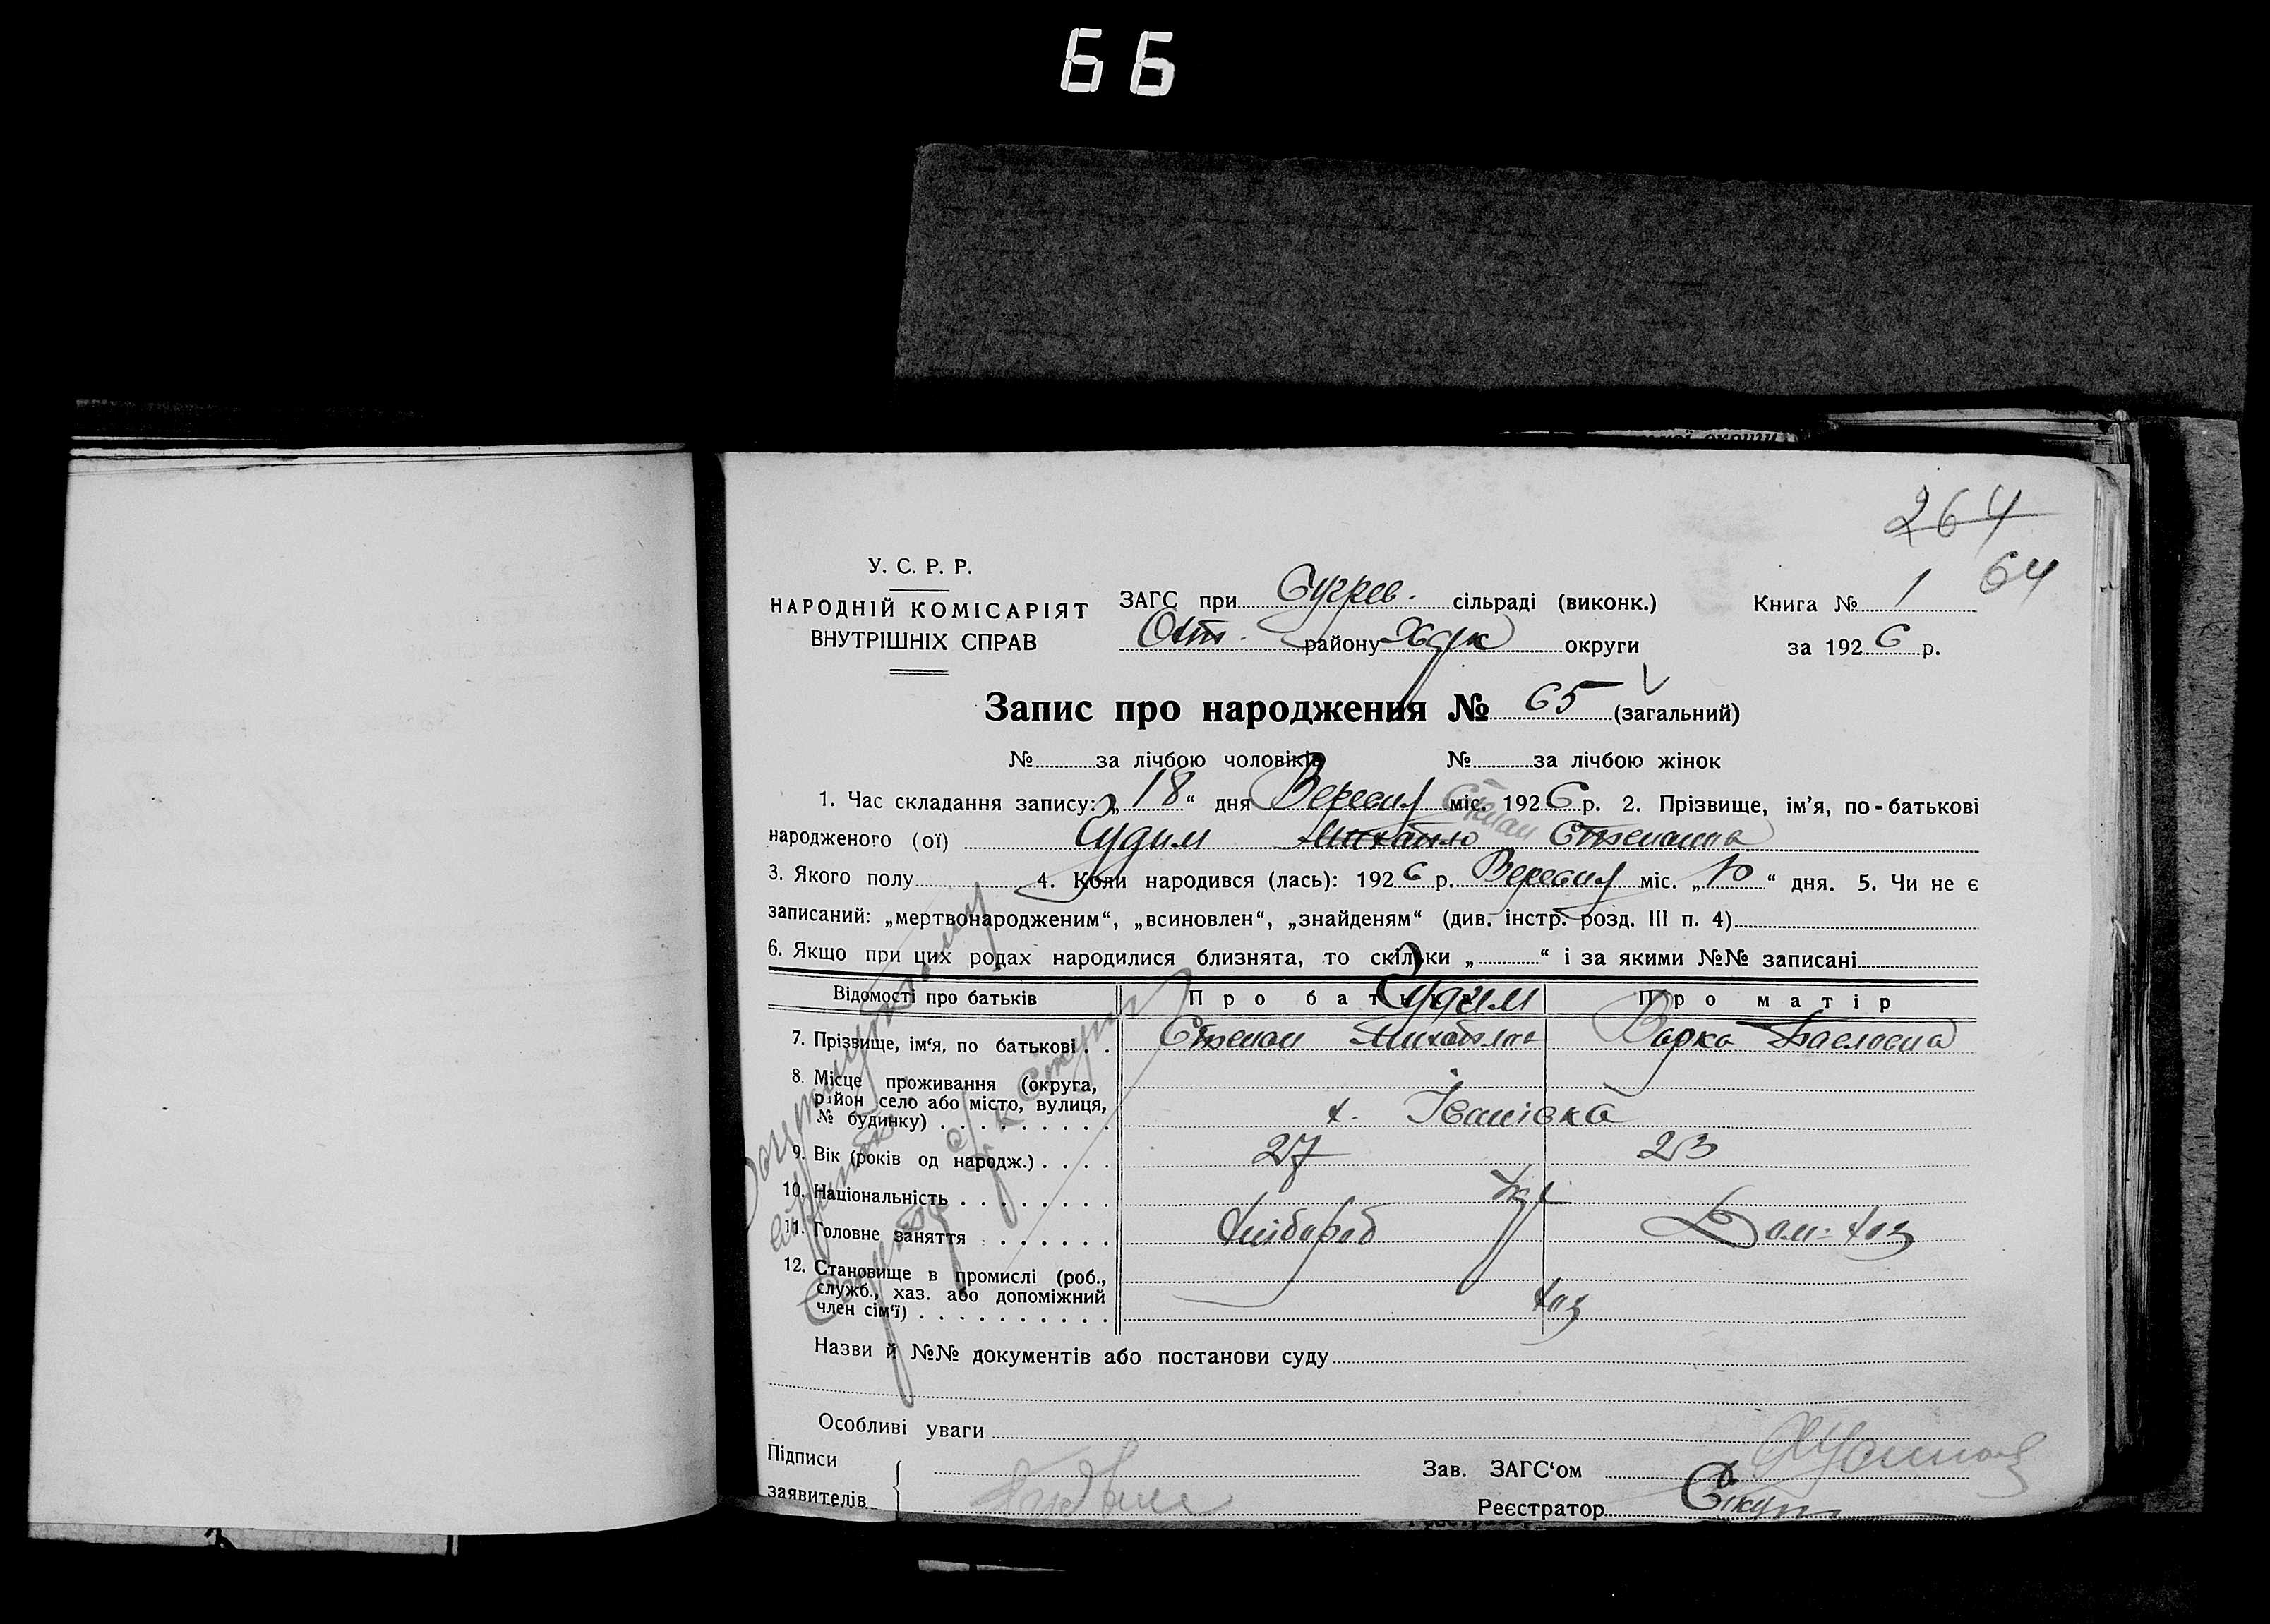 66
264
64
У. С. Р. Р.
НАРОДНІЙ КОМІСАРІЯТ
ВНУТРІШНІХ СПРАВ
ЗАГС при Сугрев. сільраді (виконк.)
Охт. району Харк округи
Книга № 1
за 1926 р.
Запис про народження № 65 (загальний)
№ за лічбою чоловіків № за лічбою жінок
1. Час складання запису: „18“ дня Вересня міс. 1926 р. 2. Прізвище, ім'я, по-батькові
Степан
народженого (ої) Судим Михайло Степанів
3. Якого полу 4. Коли народився (лась): 1926 р. Вересня міс. „10“ дня. 5. Чи не є
записаний: „мертвонародженим“, „всиновлен“, „знайденям“ (див. інстр. розд. III п. 4)
6. Якщо при цих родах народилися близнята, то скільки „ “ і за якими №№ записані
Відомості про батьків Про батька Про матір
Судим
7. Прізвище, ім'я, по батькові Степан Михайлов Варка Павловна
8. Місце проживання (округа,
район село або місто, вулиця,
№ будинку) х. Іванівка
9. Вік (років од народж.) 27 23
10. Національність Укр
11. Головне заняття Хлібороб Дом-хоз
12. Становище в промислі (роб.,
служб., хаз. або допоміжний
член сім'ї) хоз
Назви й №№ документів або постанови суду
Особливі уваги
Підписи
заявителів
Зав. ЗАГС'ом
Реєстратор